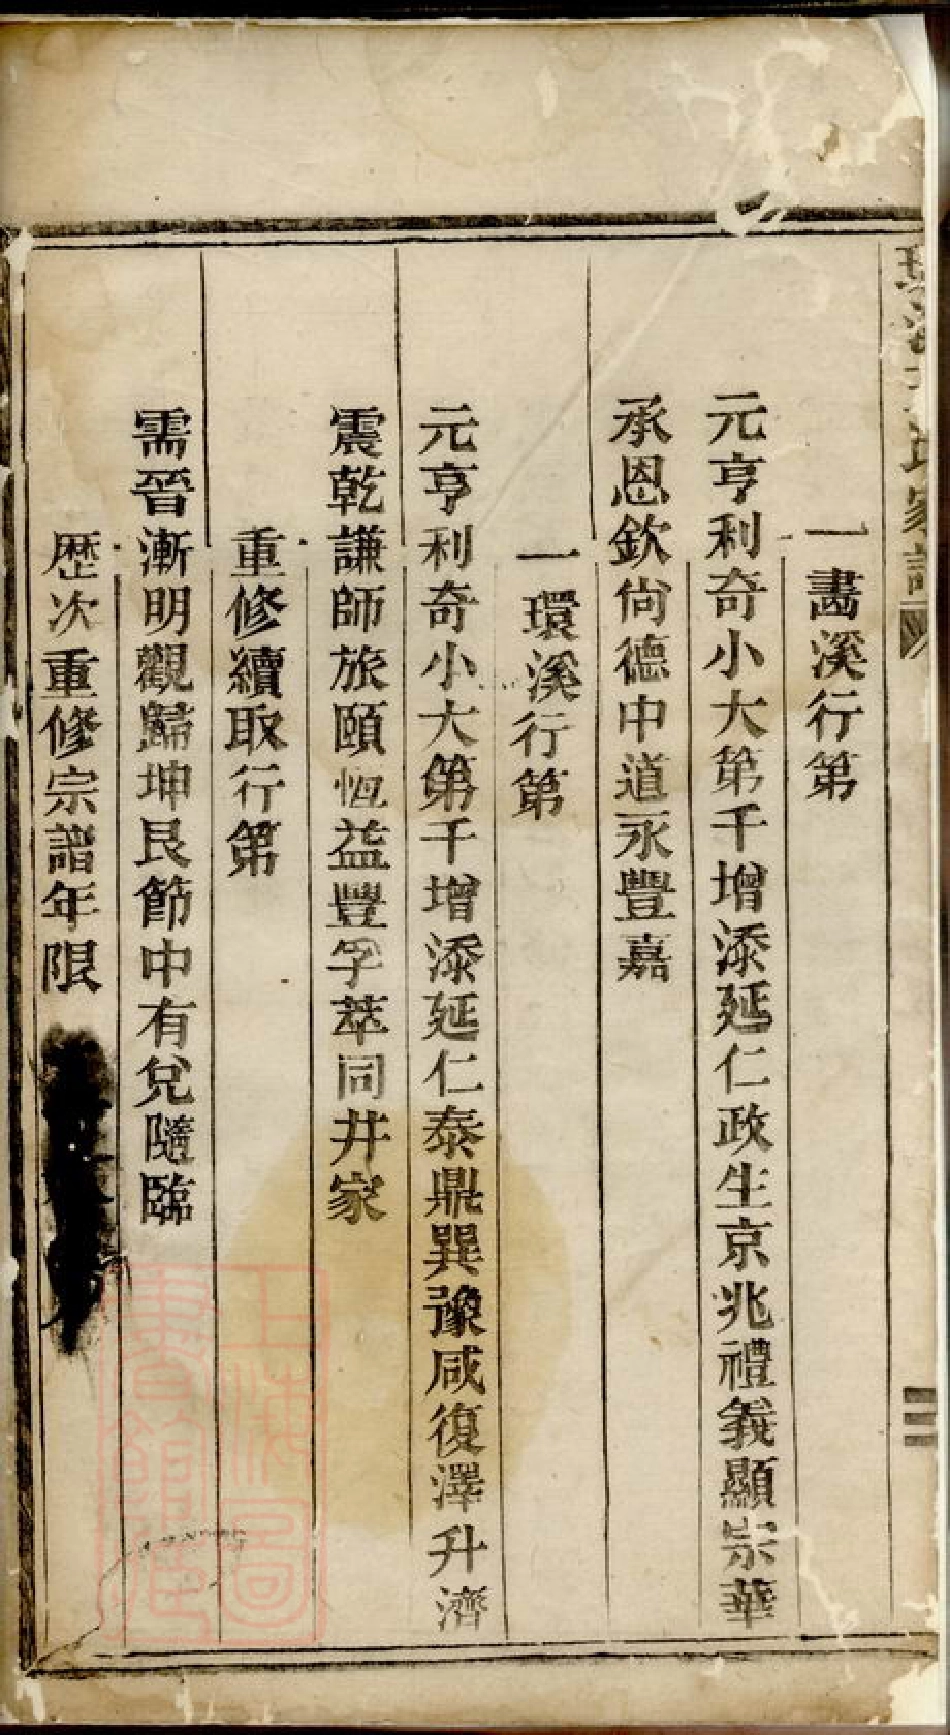 一畵溪行第
元亨利奇小大第千增添延仁政生京兆禮義顯宗華
承恩欽尙德中道永豐嘉
一環溪行第
元亨利奇小大第千增添延仁泰鼎巽豫咸復澤升濟
震乾謙師旅頤恒益豐孚萃同井家
重修續取行第
需晉漸明觀歸坤艮節中有兌隨臨
歴次重修宗譜年限
上海圖書館藏